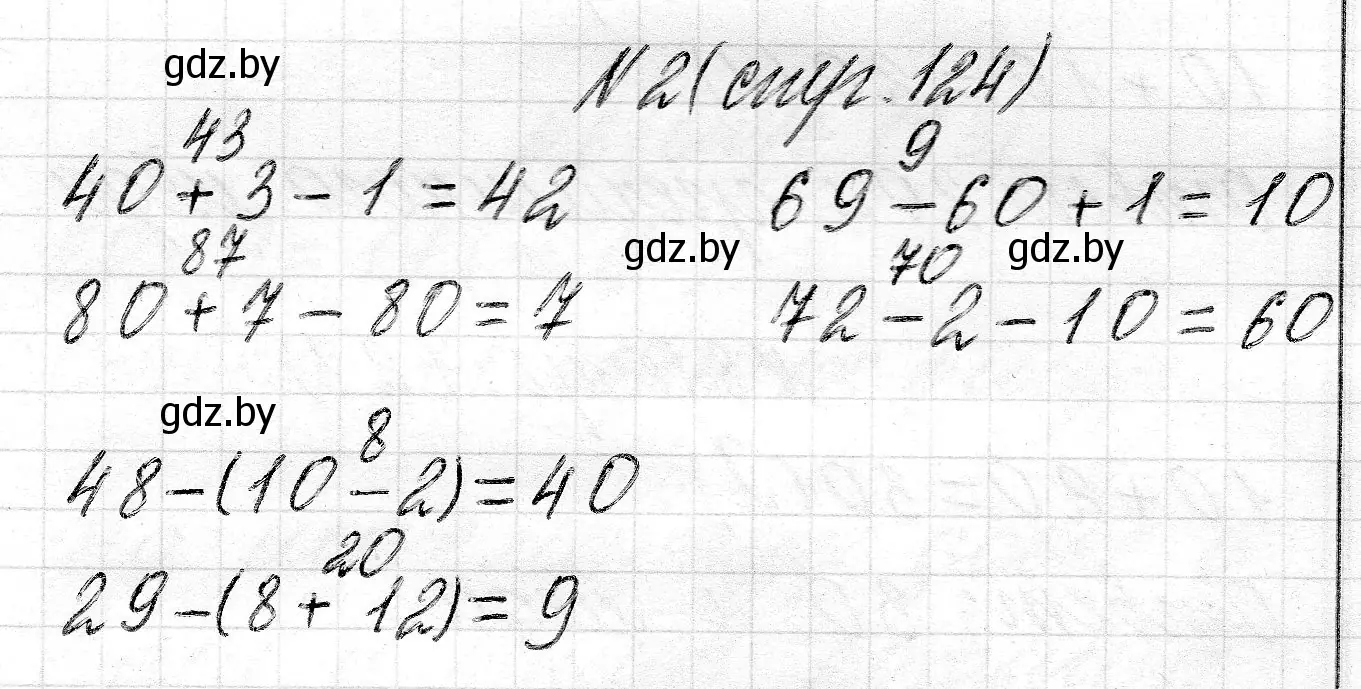 gdz.by
N2(стр.124)
43 9
40+3-1=42 69-60+1=10
87 gdz.by 70 gdz.by
80+7-80=7 72-2-10=60
gdz.by 8
48-(10-2)=40
20
29-(8+12)=9